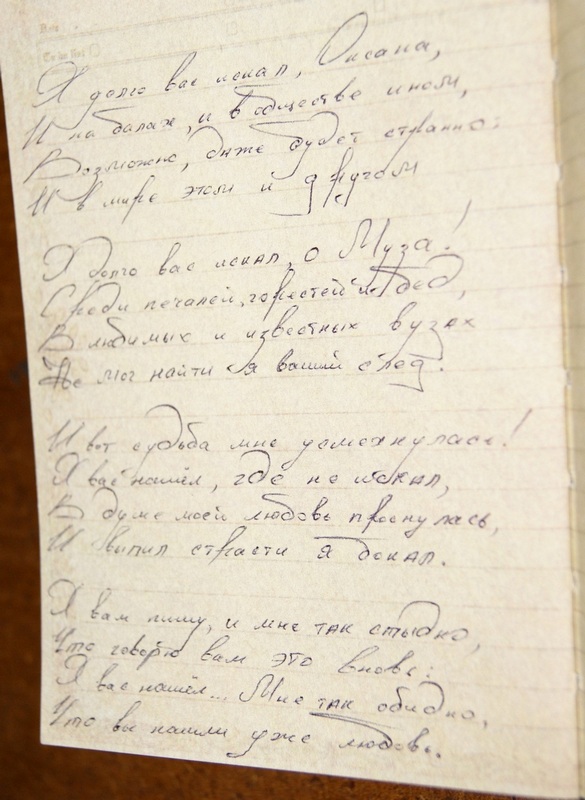 Я долго вас искал, Оксана,
И на балах, и в обществе ином,
Возможно, даже будет странно:
И в мире этом и другом
Я долго вас искал, о Муза!
Среди печалей, горестей и бед,
В любимых и известных вузах
Не мог найти я вашей след.
И вот судьба мне усмехнулась!
Я вас нашёл, где не искал,
В думе моей любовь проснулась,
И выпил страсти я бокал.
Я вам пишу, и мне так стыдно,
Что говорю вам это вновь:
Я вас нашёл... Мне так обидно,
Что вы нашли уже любовь.